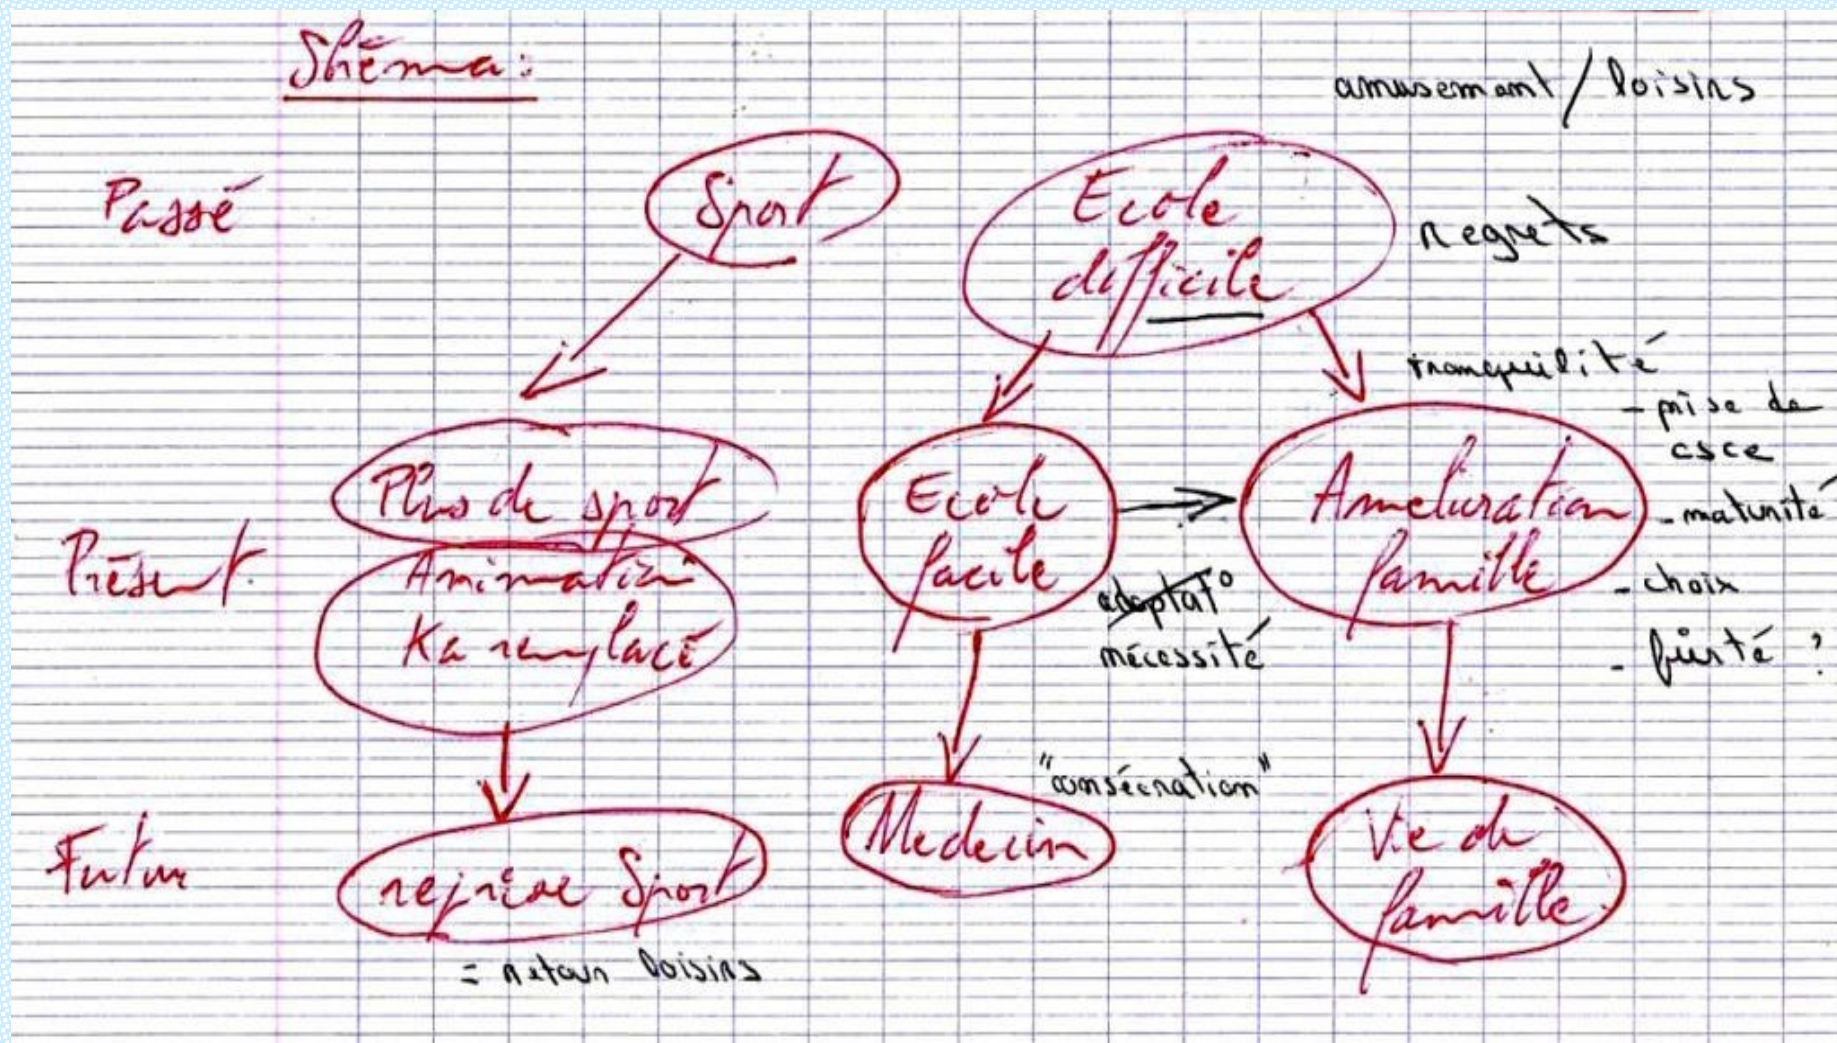 Shéma:
amusement / loisirs
Passé
Sport
Ecole
difficile
regrets
tranquilité
- prise de
csce
- maturité
- choix
- fierté ?
Présent
Plus de sport
Animation
Ka remplacé
Ecole
facile
adaptat°
nécessité
Amelioration
famille
Futur
reprise Sport
= retour loisirs
"consécration"
Medecin
Vie de
famille